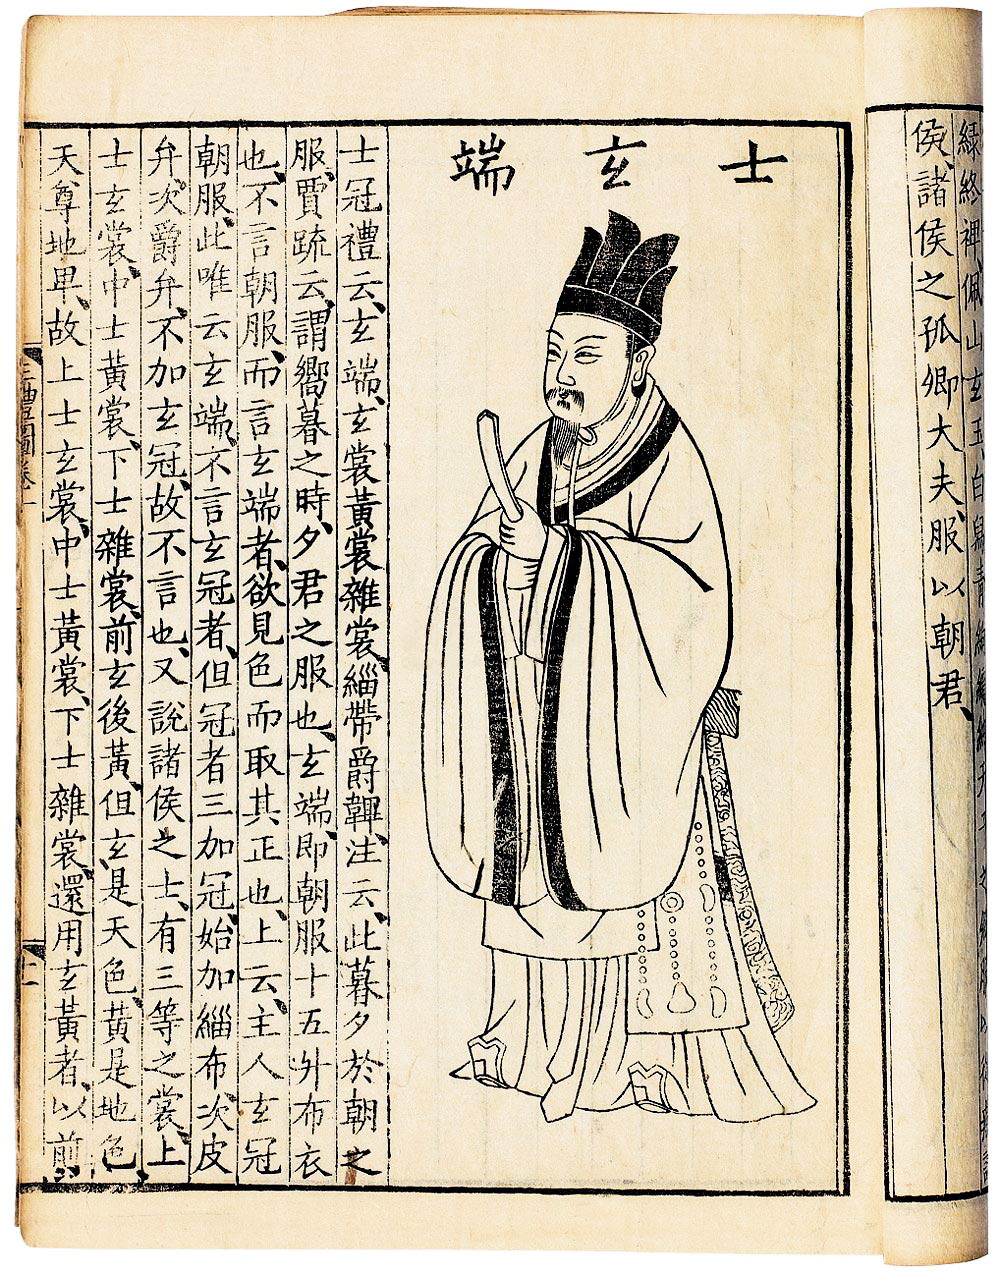 終裨、佩山玄玉、白舄青
侯、諸侯之孤卿大夫、服以朝君、
士玄端
士冠禮云、玄端、玄裳黃裳雜裳、緇帶爵韠、注云、此暮夕於朝之
服、賈疏云、謂嚮暮之時、夕君之服也、玄端、即朝服十五升布衣
也、不言朝服、而言玄端者、欲見色而取其正也、上云、主人玄冠
朝服、此唯云玄端、不言玄冠者、但冠者三加冠、始加緇布、次皮
弁、次爵弁、不加玄冠、故不言也、又說諸侯之士、有三等之裳、上
士玄裳、中士黃裳、下士雜裳、前玄後黃、但玄是天色、黃是地色
天尊地卑、故上士玄裳、中士黃裳、下士雜裳、還用玄黃者、以前
三禮圖卷一